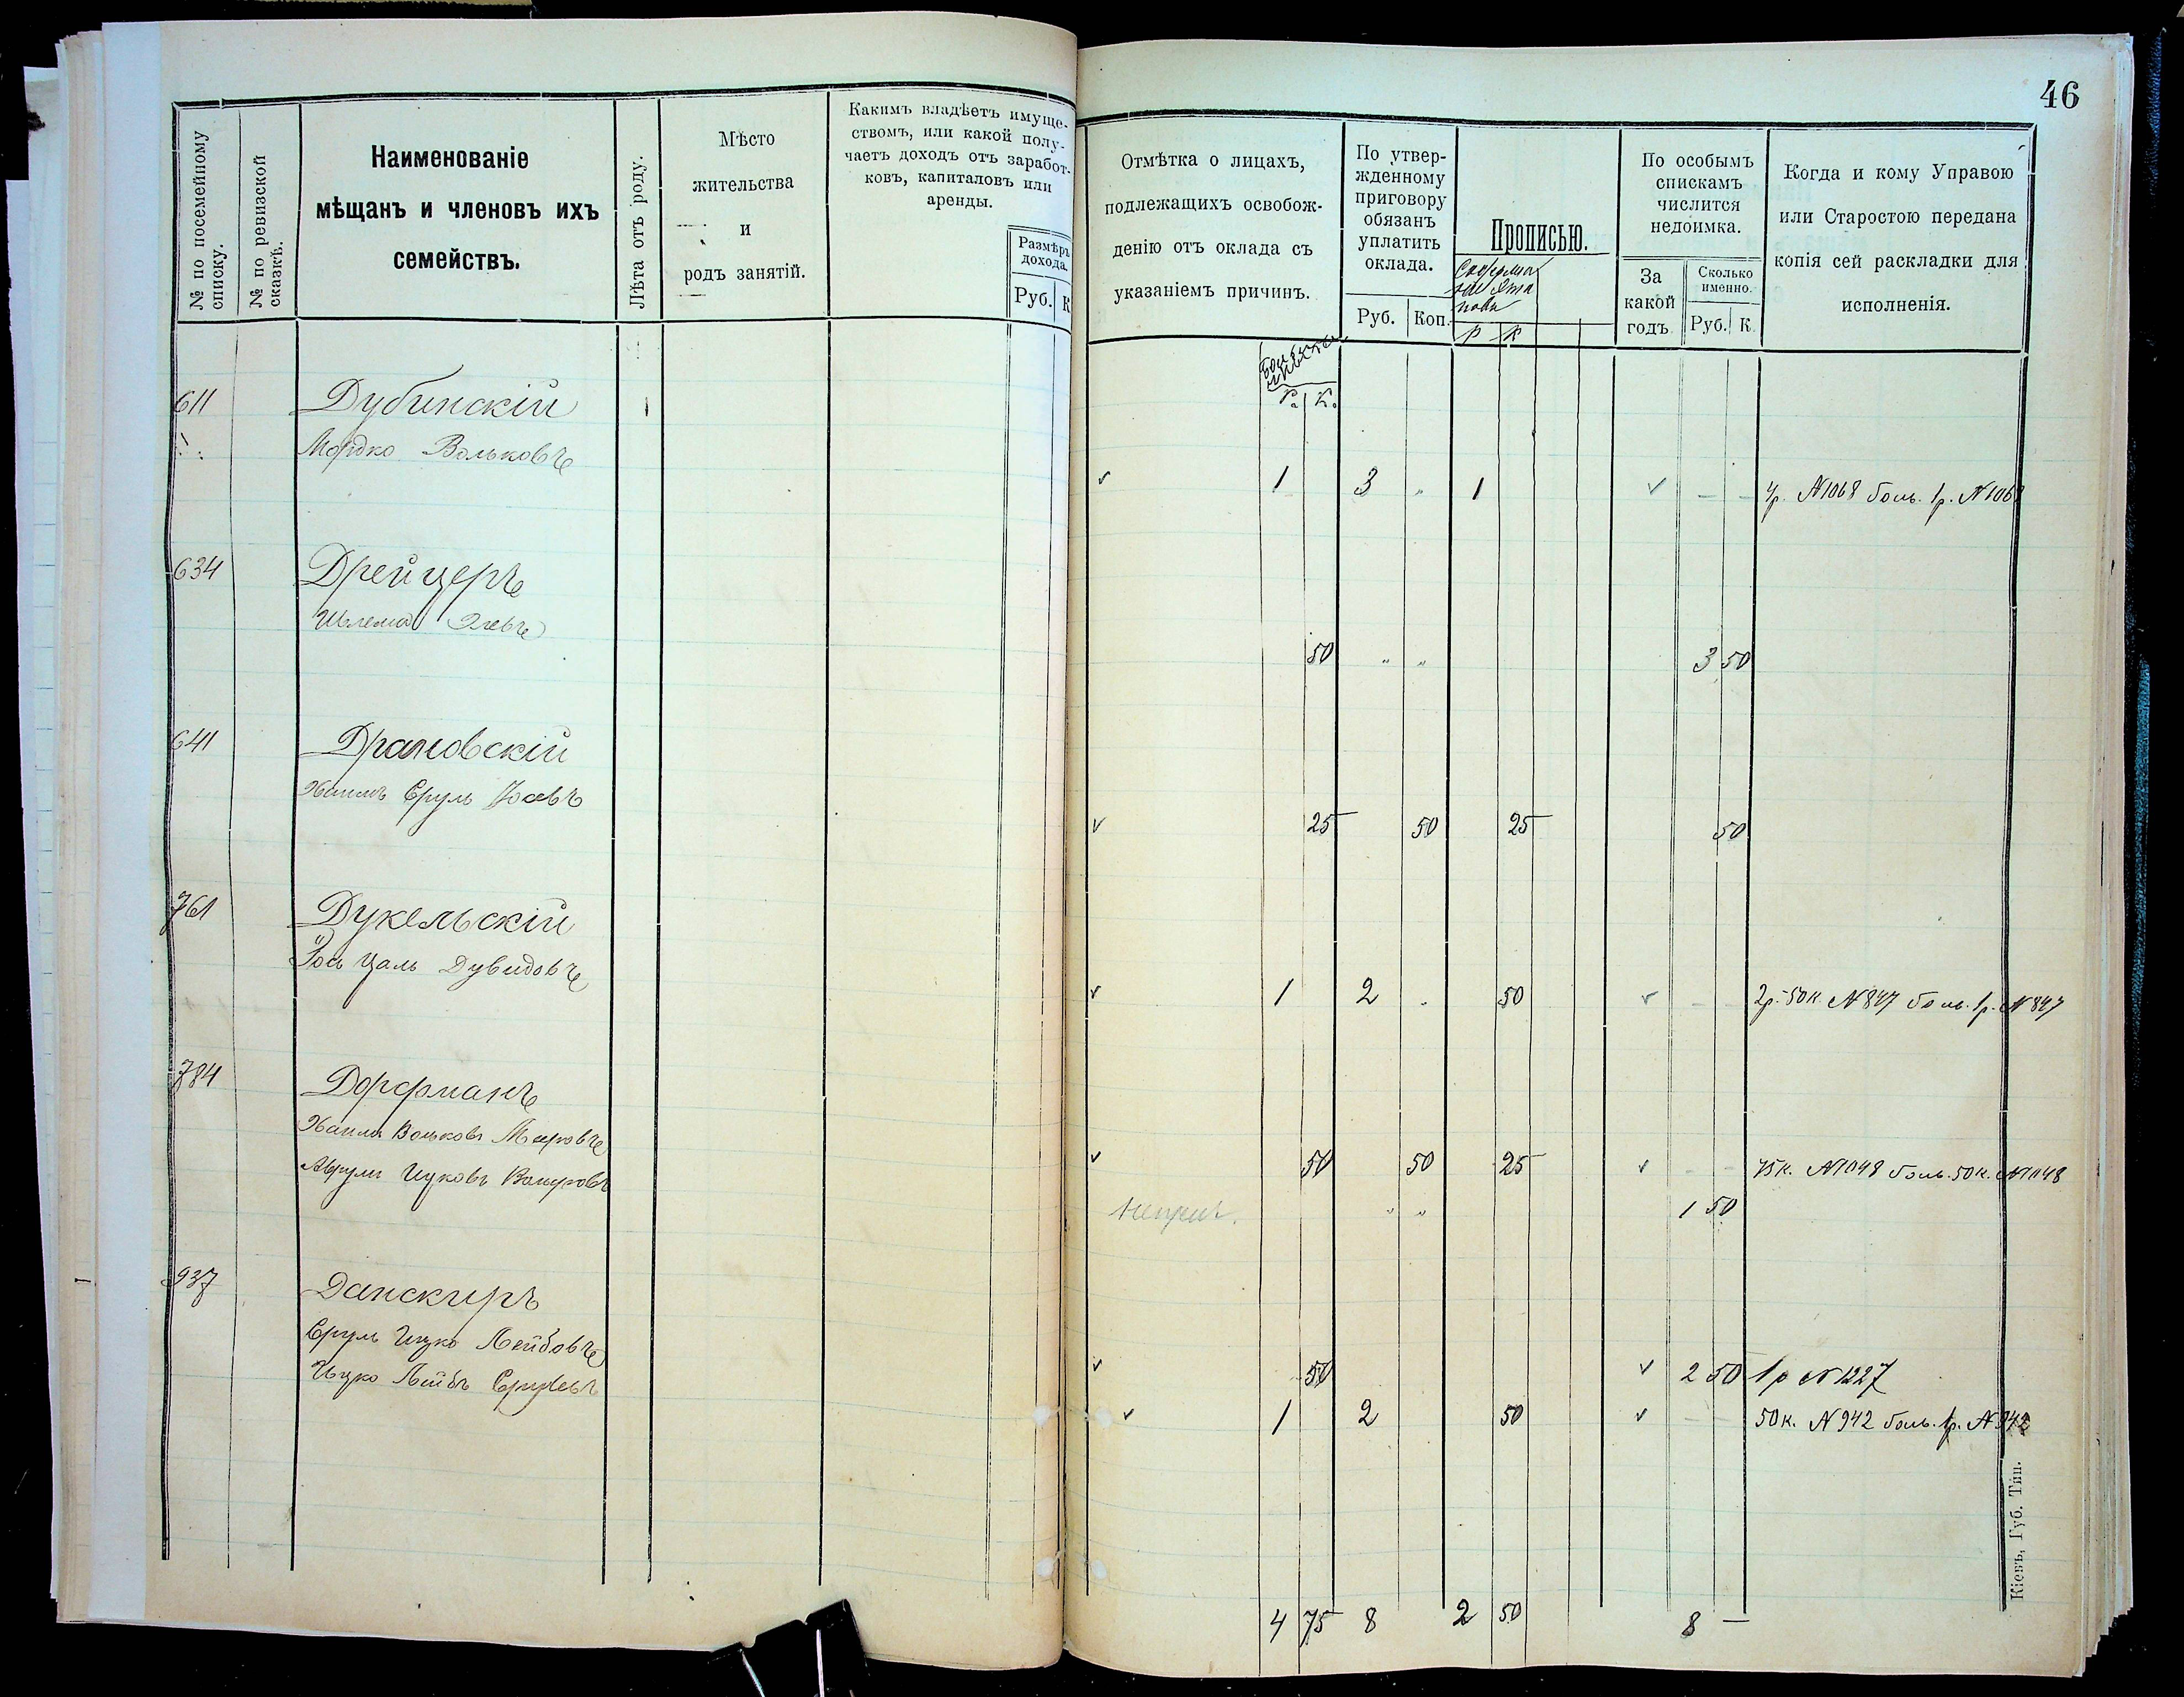 46
№ по посемейному
списку.
№ по ревизской
сказкѣ.
Наименованіе
мѣщанъ и членовъ ихъ
семействъ.
Лѣта отъ роду.
Мѣсто
жительства
и
родъ занятій.
Какимъ владѣетъ имуще-
ствомъ, или какой полу-
чаетъ доходъ отъ заработ-
ковъ, капиталовъ или
аренды.
Размѣръ
дохода.
Руб. К
Отмѣтка о лицахъ,
подлежащихъ освобож-
денію отъ оклада съ
указаніемъ причинъ.
По утвер-
жденному
приговору
обязанъ
уплатить
оклада.
Руб. Коп.
Прописью.
Р К
По особымъ
спискамъ
числится
недоимка.
За
какой
годъ
Сколько
именно.
Руб. К.
Когда и кому Управою
или Старостою передана
копія сей раскладки для
исполненія.
Р. К.
611 Дубинскій
Мордко Вольковъ
1 3 „ 1 — — 4р. №1068 боль. 1р. №1068
634 Дрейцеръ
Шлема
50 „ „ 3 50
641 Драновскій
Хаимъ Сруль Іосевъ
25 50 25 50
761 Дукельскій
Іось Цаль Дувидовъ
1 2 „ 50 — — 2р. 50к. №847 боль. 1р. №847
784 Дорфманъ
Хаимъ Вольковъ Мееровъ
50 50 25 — — 75к. №1048 боль. 50к. №1048
„ „ 1 50
937 Данскиръ
Сруль Ицко Лейбовъ
50 2 50 1р №1227
Ицко Лейбъ Срулевъ
1 2 50 — — 50к. №942 боль. 1р. №942
4 75 8 2 50 8 —
Кіевъ, Губ. Тип.